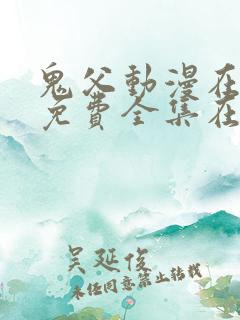 鬼父動漫在
免費全集在
吴延俊
未经同意禁止转载